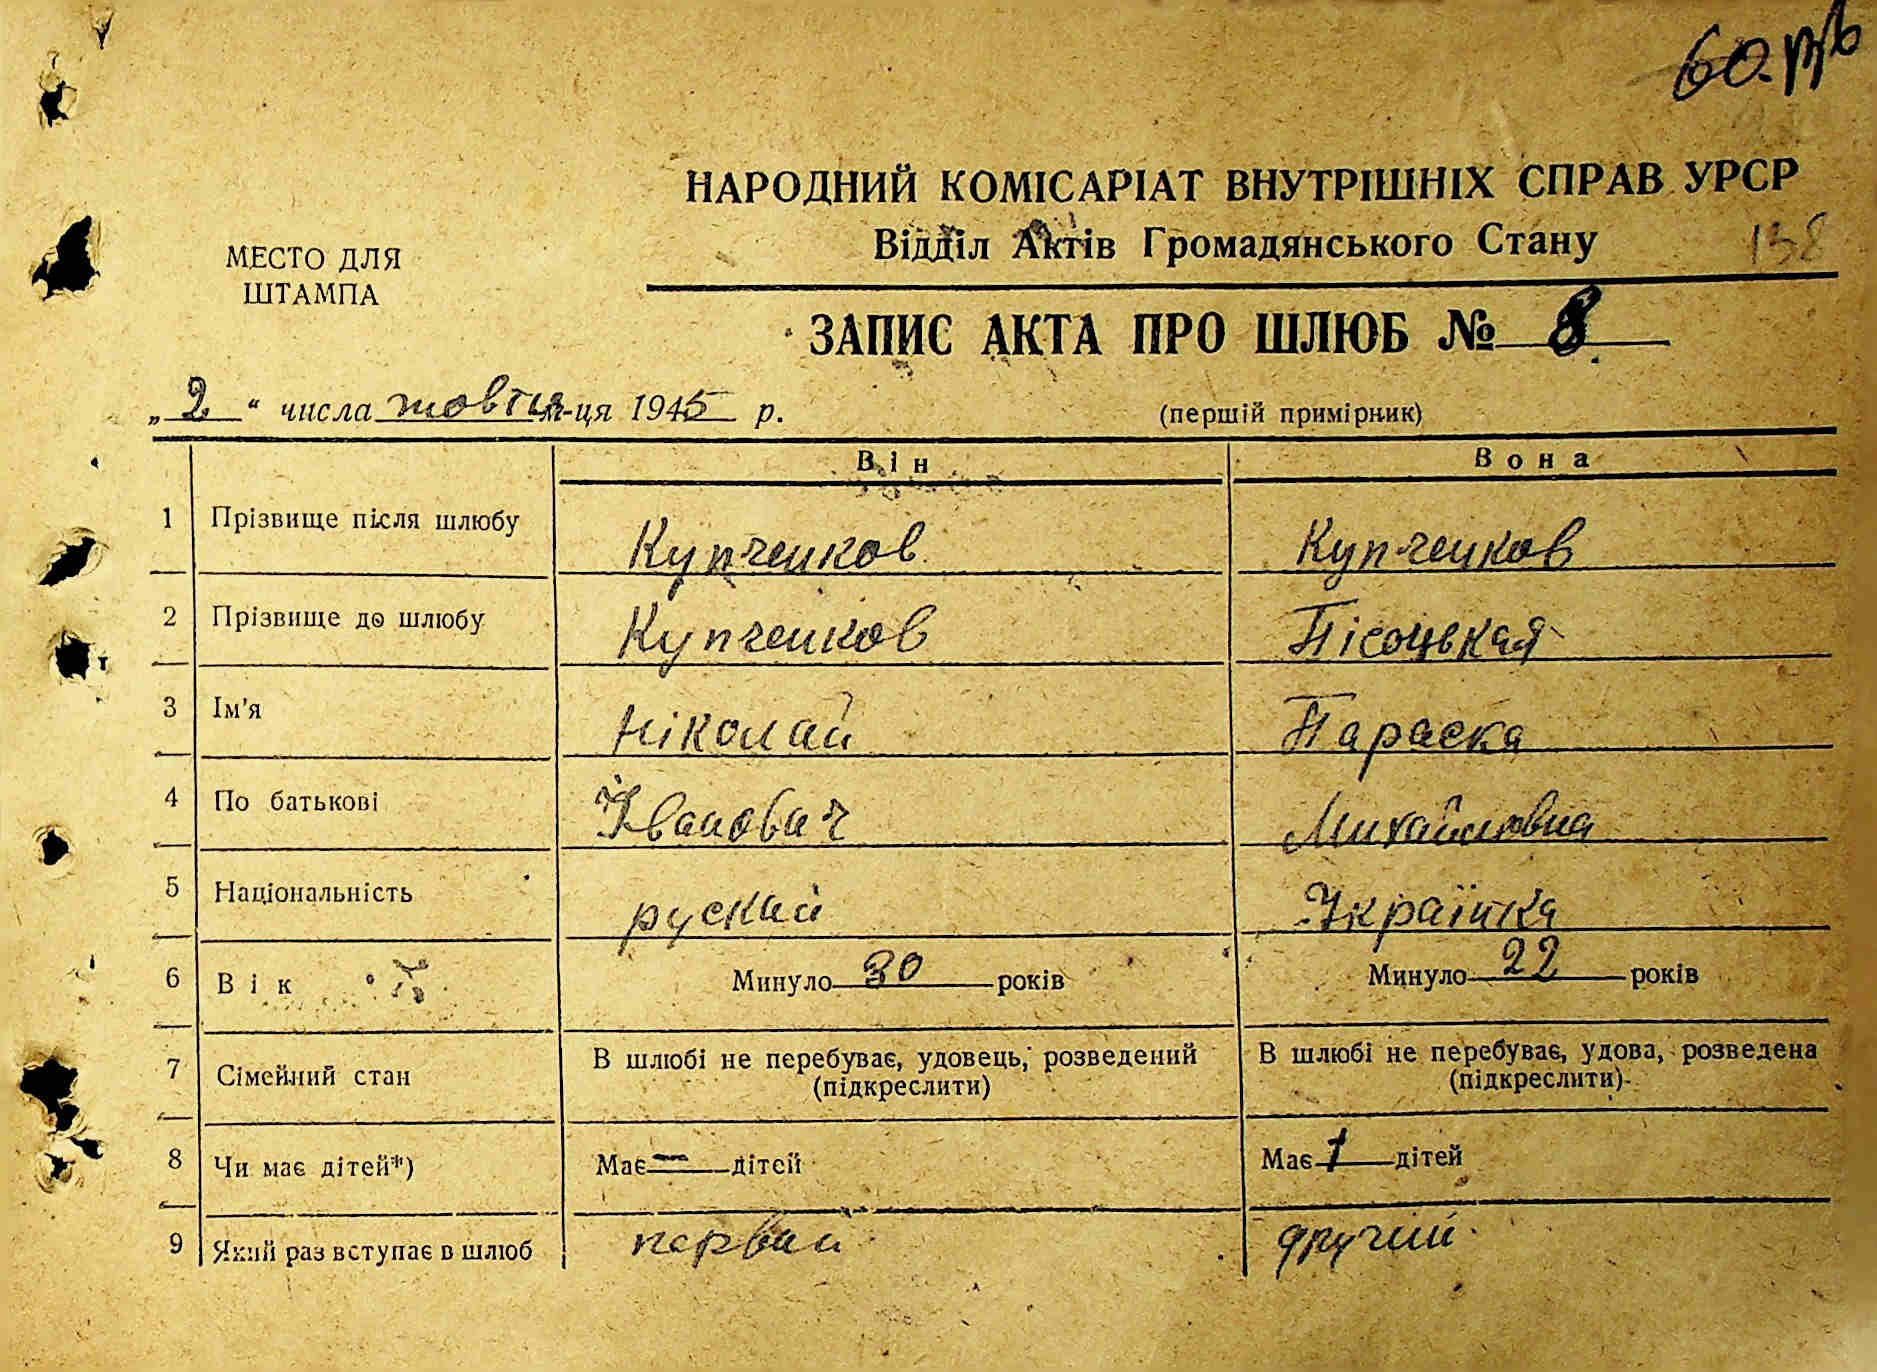 60. рб
НАРОДНИЙ КОМІСАРІАТ ВНУТРІШНІХ СПРАВ УРСР
Відділ Актів Громадянського Стану 138
МЕСТО ДЛЯ
ШТАМПА
ЗАПИС АКТА ПРО ШЛЮБ № 8
„2“ числа жовтня м-ця 1945 р. (першій примірник)
Він Вона
1 Прізвище після шлюбу Купченков Купченков
2 Прізвище до шлюбу Купченков Пісоцькая
3 Ім'я Ніколай Параска
4 По батькові Іванович Михайловна
5 Національність руский Українка
6 Вік Минуло 30 років Минуло 22 років
7 Сімейний стан В шлюбі не перебуває, удовець, розведений (підкреслити) В шлюбі не перебуває, удова, розведена (підкреслити)
8 Чи має дітей*) Має — дітей Має 1 дітей
9 Який раз вступає в шлюб первай другий